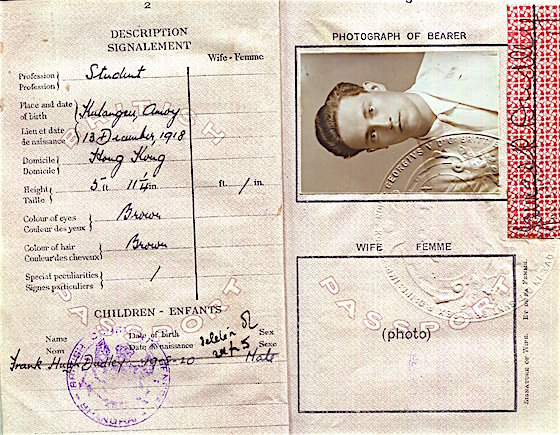 2
DESCRIPTION
SIGNALEMENT
Wife - Femme
Profession
Profession
Student
Place and date
of birth
Kulangsu, Amoy
Lieu et date
de naissance
13 December, 1918
Domicile
Domicile
Hong Kong
Height
Taille
5 ft. 11 1/4 in.
ft. / in.
Colour of eyes
Couleur des yeux
Brown
Colour of hair
Couleur des cheveux
Brown
Special peculiarities
Signes particuliers
/
CHILDREN - ENFANTS
Name
Nom
Date of birth
Date de naissance
Sex
Sexe
Frank Hugh Dudley
Male
PASSPORT
PHOTOGRAPH OF BEARER
GEORGIVS V D.G. BRITT
WIFE FEMME
PASSPORT
(photo)
SIGNATURE OF WIFE ET DE SA FEMME